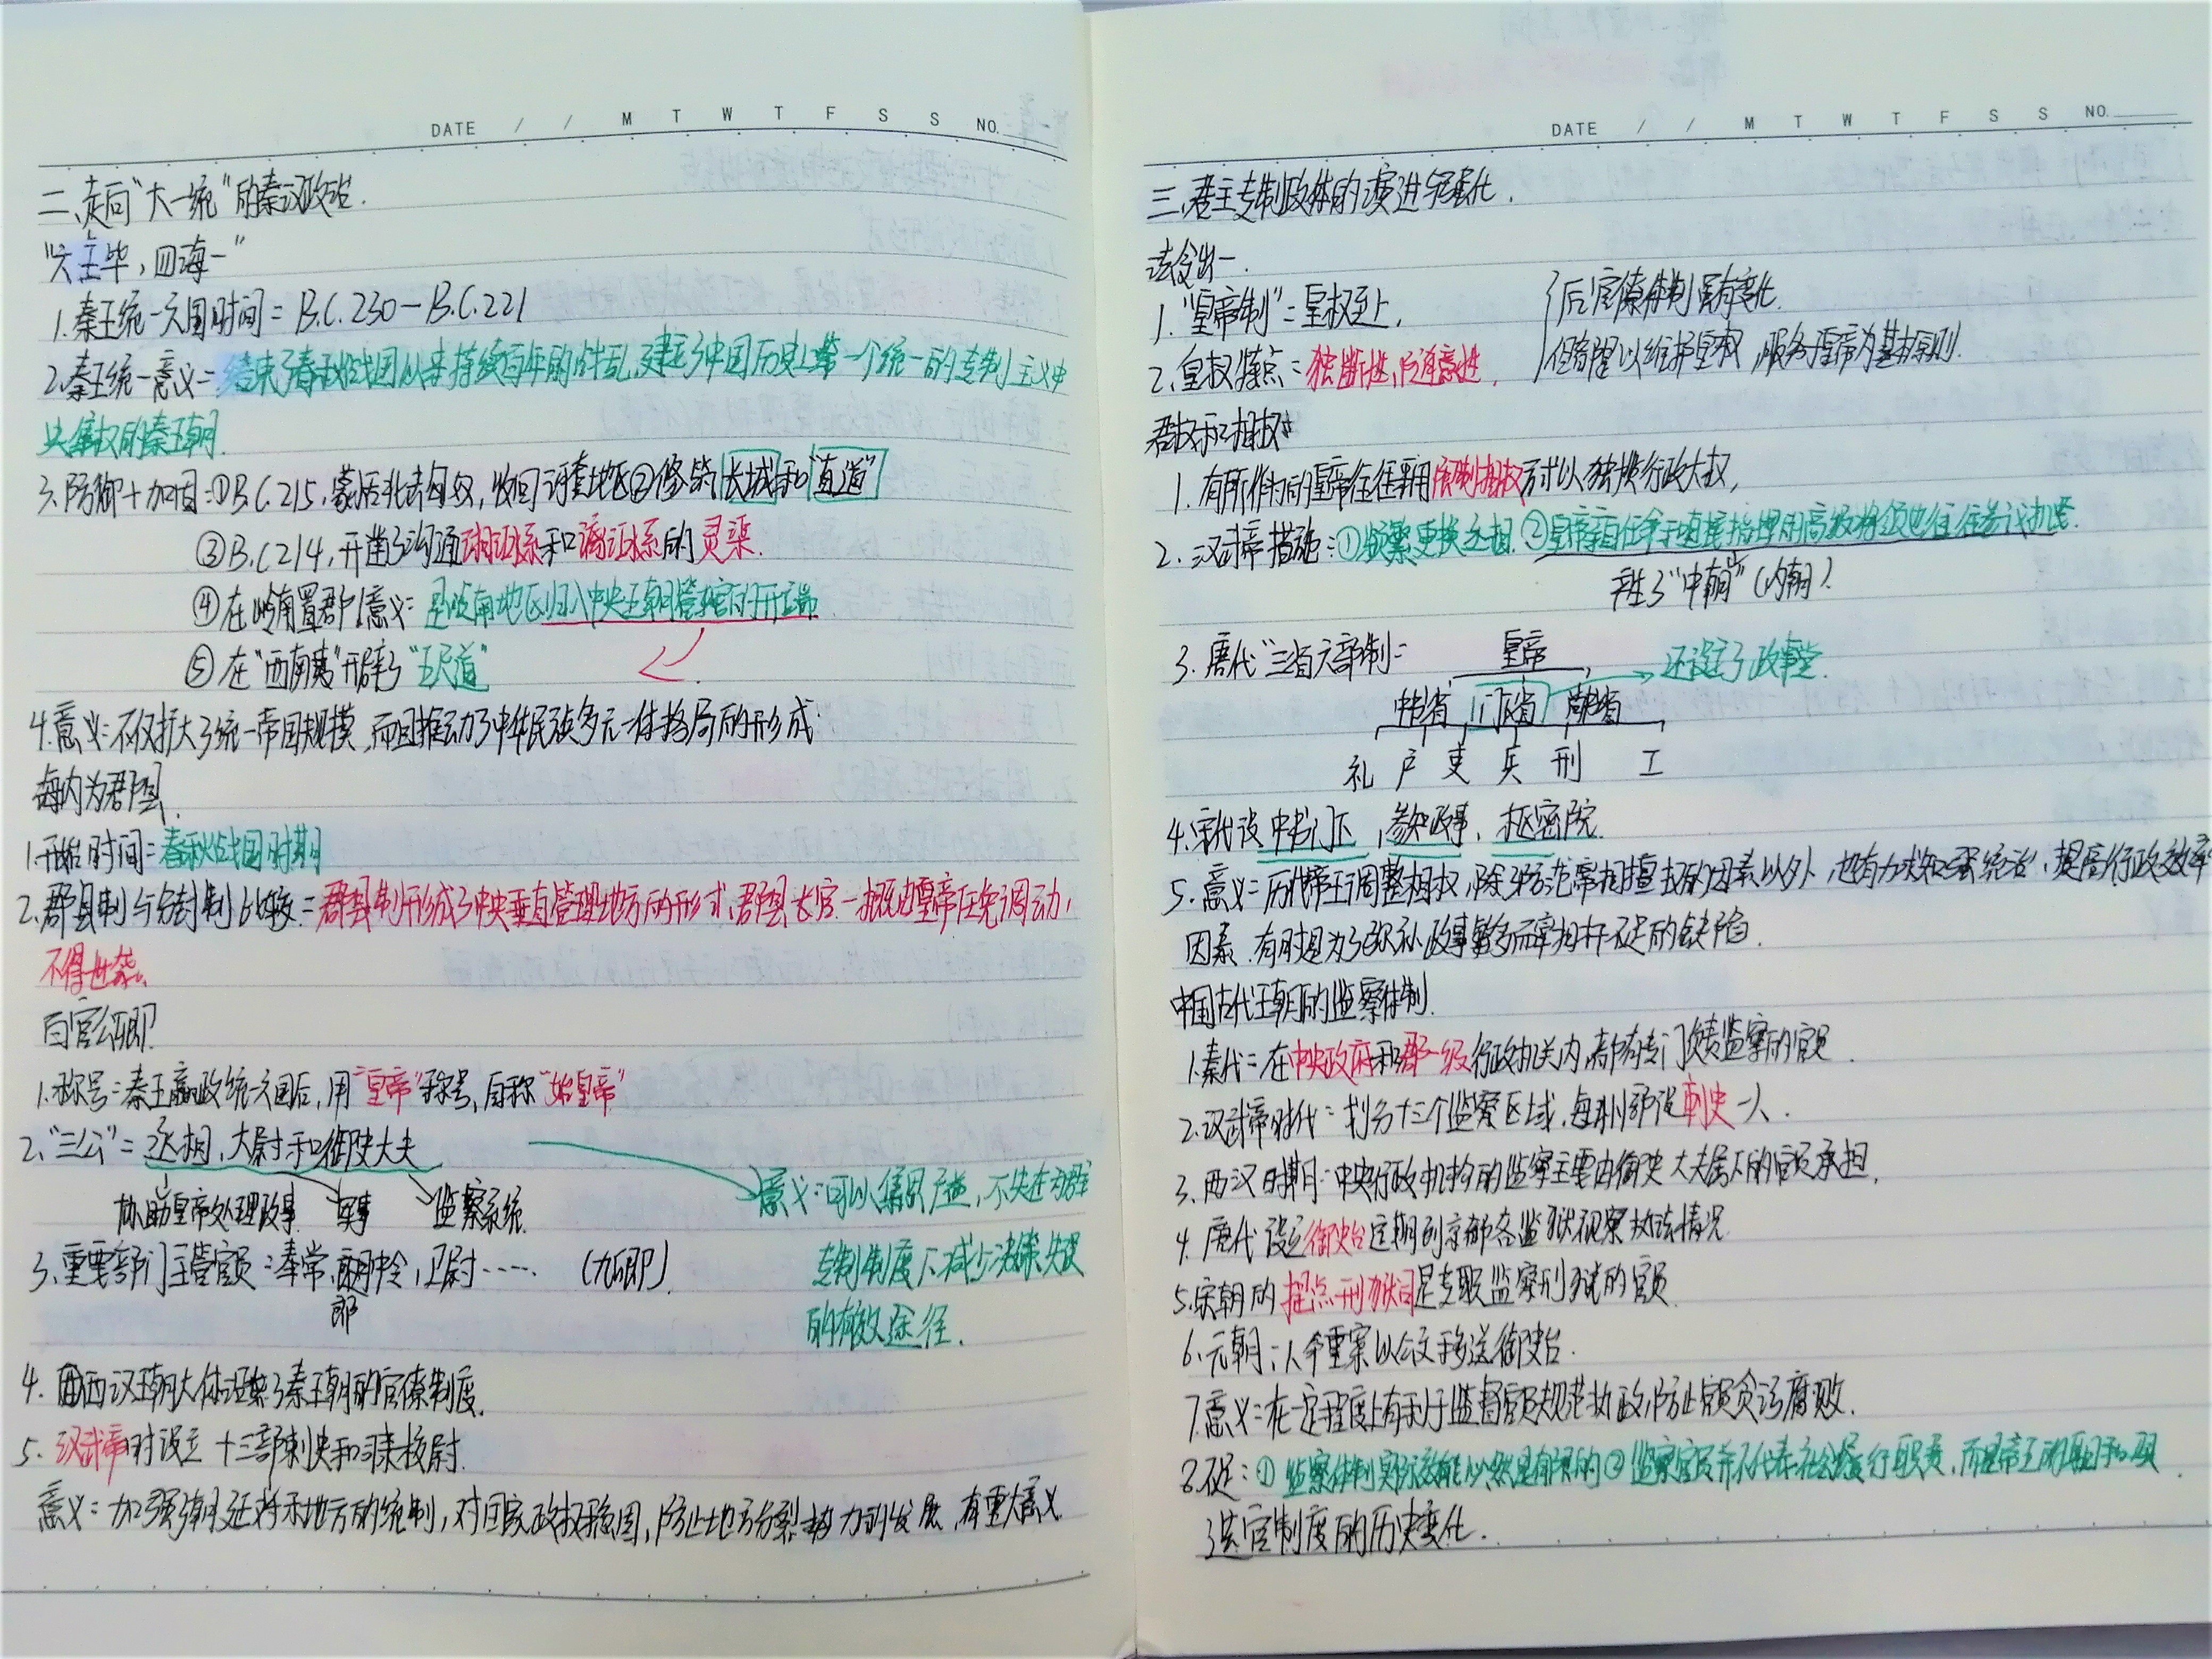 DATE / / M T W T F S S NO.
二、走向“大一统”的秦汉政治.
“六王毕，四海一”
1.秦王统一六国时间：B.C.230－B.C.221
2.秦王统一意义：结束了春秋战国以来持续百年的战乱,建起了中国历史上第一个统一的专制主义中
央集权的秦王朝.
3.防御＋加固:①B.C.215,蒙恬北击匈奴,收回河套地区②修筑长城和“直道”
③B.C.214,开凿了沟通湘江水系和漓江水系的灵渠.
④在岭南置郡(意义：是岭南地区归入中央王朝管辖的开端
⑤在“西南夷”开辟了“五尺道”
4.意义:不仅扩大了统一帝国规模,而且推动了中华民族多元一体格局的形成.
海内为郡县.
1.开始时间:春秋战国时期
2.郡县制与分封制比较：郡县制形成了中央垂直管理地方的形式,郡县长官一概由皇帝任免调动,
不得世袭.
百官公卿.
1.称号：秦王嬴政统六国后,用“皇帝”称号,自称“始皇帝”
2.“三公”：丞相,太尉和御史大夫
协助皇帝处理政事 军事 监察系统.
意义:可以集思广益,不失在君主
专制制度下减少决策失误
的有效途径.
3.重要部门主管官员：奉常,郎中令,卫尉…… (九卿)
郎
4.西汉王朝大体沿袭了秦王朝的官僚制度.
5.汉武帝时设立十三部刺史和司隶校尉.
意义：加强朝廷对地方的统制,对国家政权稳固,防止地方分裂势力的发展,有重大意义.
DATE / / M T W T F S S NO.
三、君主专制政体的演进与强化.
法令出一.
1.“皇帝制”：皇权至上,
2.皇权特点：独断性,随意性.
后官僚体制虽有变化.
但希望以维护皇权,服务皇帝为基本原则.
君权和相权
1.有所作为的皇帝往往采用限制相权方式以独揽行政大权,
2.汉武帝措施:①频繁更换丞相.②皇帝亲自任命于直接指挥的高级将领也往往参议决策.
产生了“中朝”(内朝).
3.唐代“三省六部制：皇帝
还设立了政事堂.
中书省 门下省 尚书省
礼 户 吏 兵 刑 工
4.宋代设中书门下,参知政事,枢密院.
5.意义：历代帝王调整相权,除了防范宰相擅权的因素以外,也有力求加强统治,提高行政效率
因素.有时是为了弥补政事繁多而宰相才不足的缺陷.
中国古代王朝的监察体制.
1.秦代：在中央政府和郡一级行政机关内,都有专门负责监察的官员.
2.汉武帝时代：划分十三个监察区域,每州部设刺史一人.
3.西汉时期:中央行政机构的监察主要由御史大夫属下的官员承担.
4.唐代设立御史台定期到京都各监狱视察执法情况.
5.宋朝的提点刑狱司是专职监察刑狱的官员.
6.元朝:人命重案以公文移送御史台.
7.意义:在一定程度上有利于监督官员规范执政,防止官员贪污腐败.
8.不足:①监察体制实际效能必然是有限的②监察官员并不代表社会履行职责,而是帝王的耳目和
选官制度的历史变化.